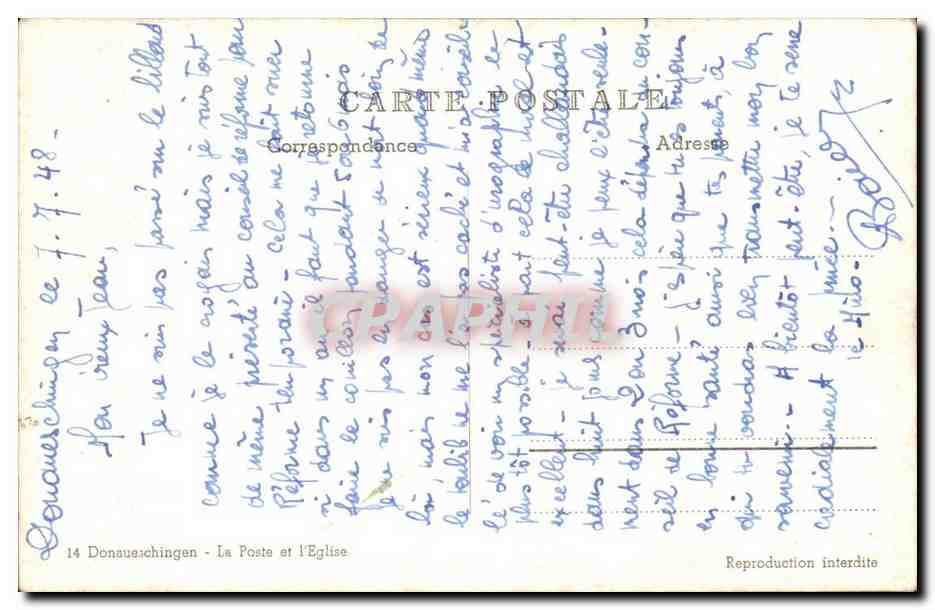 CARTE POSTALE
Correspondance
Adresse
Donaueschingen le 7.7.48-
Mon vieux Jean,
Je ne suis pas passé sur le billard
comme je le croyais mais je suis tout
de même présenté au conseil de réforme pour
Réforme temporaire - cela me fait suer
si dans un an il faut que je retourne
faire le comique pendant 5 ou 6 mois
Je ne suis pas en danger de mort loin de
là mais mon cas est sérieux quand même
le toubib ne me l'a pas caché et m'a conseillé
de voir un spécialiste d'urographie le
plus tôt possible - avant cela de mal est
excellent - je serai peut-être chez
dans huit jours comme je peux l'être seule-
ment dans 2 ou 3 mois cela dépend du con-
seil de Réforme - J'espère que tu es toujours
en bonne santé ainsi que tes parents, à
qui tu voudras bien transmettre mon bon
souvenir - A bientôt peut-être, je te serre
cordialement la pince -
14 Donaueschingen - La Poste et l'Eglise
Reproduction interdite
CPAPHIL